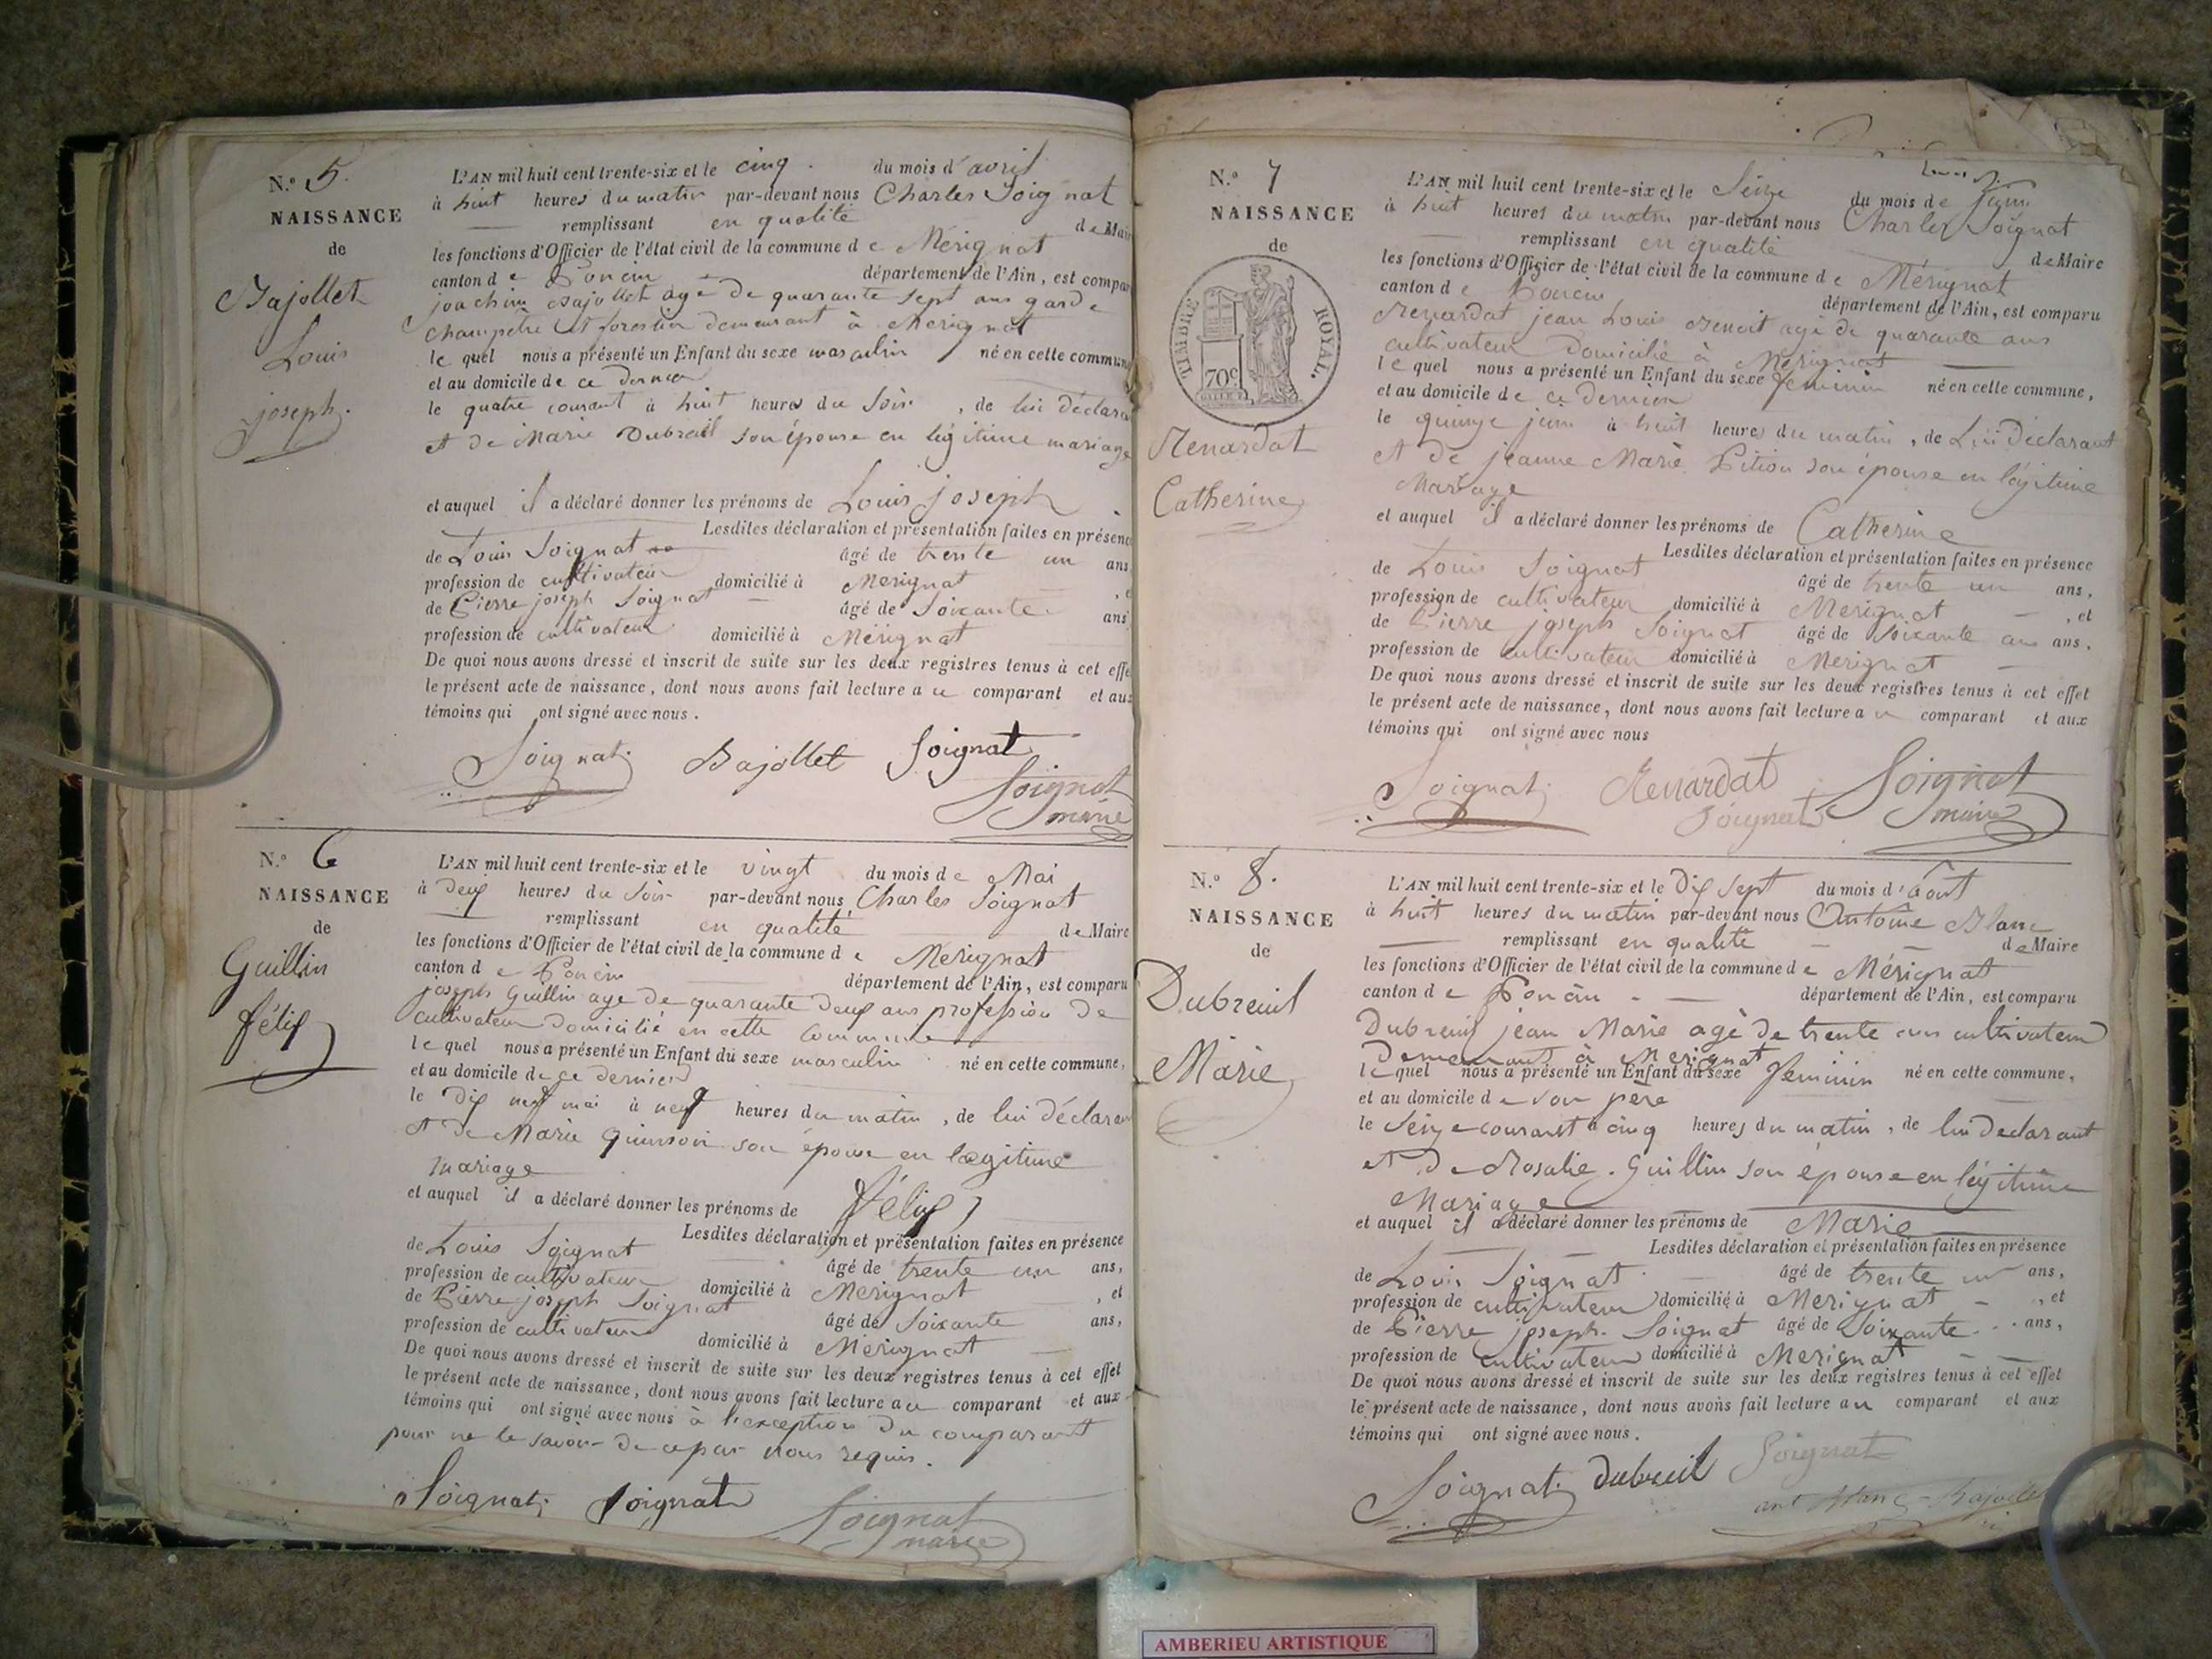 N.o 5.
NAISSANCE
de
Bajollet
Louis
joseph.
L'AN mil huit cent trente-six et le cinq du mois d'avril
à huit heures du matin par-devant nous Charles Soignat
remplissant en qualité de Mair
les fonctions d'Officier de l'état civil de la commune de Mérignat
canton de Poncin département de l'Ain, est compar
joachim Bajollet age de quarante sept ans garde
champetre et forestier demeurant à Merignat
le quel nous a présenté un Enfant du sexe masculin né en cette commune
et au domicile de ce dernier
le quatre courant à huit heures du soir, de lui déclara
et de Marie Dubreuil son épouse en légitime mariage
et auquel il a déclaré donner les prénoms de Louis joseph
Lesdites déclaration et présentation faites en présenc
de Louis Soignat âgé de trente un ans
profession de cultivateur domicilié à Merignat, e
de Pierre joseph Soignat âgé de Soixante ans
profession de cultivateur domicilié à Mérignat
De quoi nous avons dressé et inscrit de suite sur les deux registres tenus à cet effe
le présent acte de naissance, dont nous avons fait lecture au comparant et aux
témoins qui ont signé avec nous.
Soignat Bajollet Soignat
Soignat
maire
N.o 6
NAISSANCE
de
Guillin
félix
L'AN mil huit cent trente-six et le vingt du mois de Mai
à deux heures du soir par-devant nous Charles Soignat
remplissant en qualité de Maire
les fonctions d'Officier de l'état civil de la commune de Merignat
canton de Poncin département de l'Ain, est comparu
joseph Guillin age de quarante deux ans profession de
cultivateur domicilié en cette commune
le quel nous a présenté un Enfant du sexe masculin né en cette commune,
et au domicile de ce dernier
le dix neuf mai à neuf heures du matin, de lui déclaran
et de Marie son épouse en légitime
mariage
et auquel il a déclaré donner les prénoms de félix
Lesdites déclaration et présentation faites en présence
de Louis Soignat âgé de trente un ans,
profession de cultivateur domicilié à Merignat, et
de Pierre joseph Soignat âgé de Soixante ans,
profession de cultivateur domicilié à Mérignat
De quoi nous avons dressé et inscrit de suite sur les deux registres tenus à cet effet
le présent acte de naissance, dont nous avons fait lecture au comparant et aux
témoins qui ont signé avec nous à l'exception du comparant
pour ne le savoir de ce par nous requis.
Soignat Soignat
Soignat
maire
N.o 7
NAISSANCE
de
TIMBRE ROYAL.
70c
Renardat
Catherine
L'AN mil huit cent trente-six et le Seize du mois de juin
à huit heures du matin par-devant nous Charles Soignat
remplissant en qualité de Maire
les fonctions d'Officier de l'état civil de la commune de Mérignat
canton de Poncin département de l'Ain, est comparu
Renardat jean Louis Benoit agé de quarante ans
cultivateur domicilié à Mérignat
le quel nous a présenté un Enfant du sexe feminin né en cette commune,
et au domicile de ce dernier
le quinze juin à huit heures du matin, de Lui déclarant
et de jeanne Marie Pition son épouse en légitime
Mariage
et auquel il a déclaré donner les prénoms de Catherine
Lesdites déclaration et présentation faites en présence
de Louis Soignat âgé de trente un ans,
profession de cultivateur domicilié à Merignat, et
de Pierre joseph Soignat âgé de Soixante ans ans,
profession de cultivateur domicilié à Merignat
De quoi nous avons dressé et inscrit de suite sur les deux registres tenus à cet effet
le présent acte de naissance, dont nous avons fait lecture au comparant et aux
témoins qui ont signé avec nous
Soignat Renardat Soignat
Soignat maire
N.o 8.
NAISSANCE
de
Dubreuil
Marie
L'AN mil huit cent trente-six et le Dix Sept du mois d'Août
à huit heures du matin par-devant nous Antoine Blanc
remplissant en qualité de Maire
les fonctions d'Officier de l'état civil de la commune de Mérignat
canton de Poncin département de l'Ain, est comparu
Dubreuil jean Marie agé de trente ans cultivateur
demeurant à Merignat
le quel nous a présenté un Enfant du sexe feminin né en cette commune,
et au domicile de son père
le Seize courant à cinq heures du matin, de lui declarant
et de Rosalie Guillin son épouse en légitime
Mariage
et auquel il a déclaré donner les prénoms de Marie
Lesdites déclaration et présentation faites en présence
de Louis Soignat âgé de trente un ans,
profession de cultivateur domicilié à Merignat, et
de Pierre joseph Soignat âgé de Soixante ans,
profession de cultivateur domicilié à Merignat
De quoi nous avons dressé et inscrit de suite sur les deux registres tenus à cet effet
le présent acte de naissance, dont nous avons fait lecture au comparant et aux
témoins qui ont signé avec nous.
Soignat dubreuil Soignat
ant Blanc
AMBERIEU ARTISTIQUE